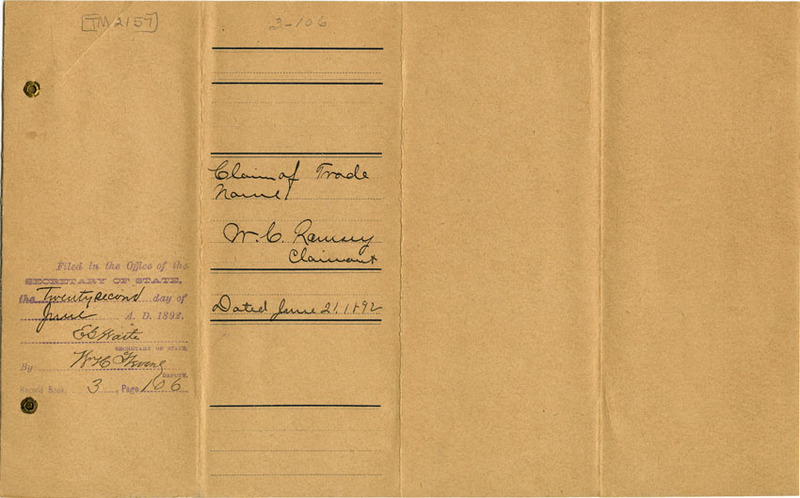 TM 2157
Filed in the Office of the
SECRETARY OF STATE,
the Twenty second day of
June A. D. 1892.
E G Waite
SECRETARY OF STATE,
By W H
DEPUTY.
Record Book 3, Page 106
3-106
Claim of Trade
Name
W. C. Ramsey
Claimant
Dated June 21, 1892